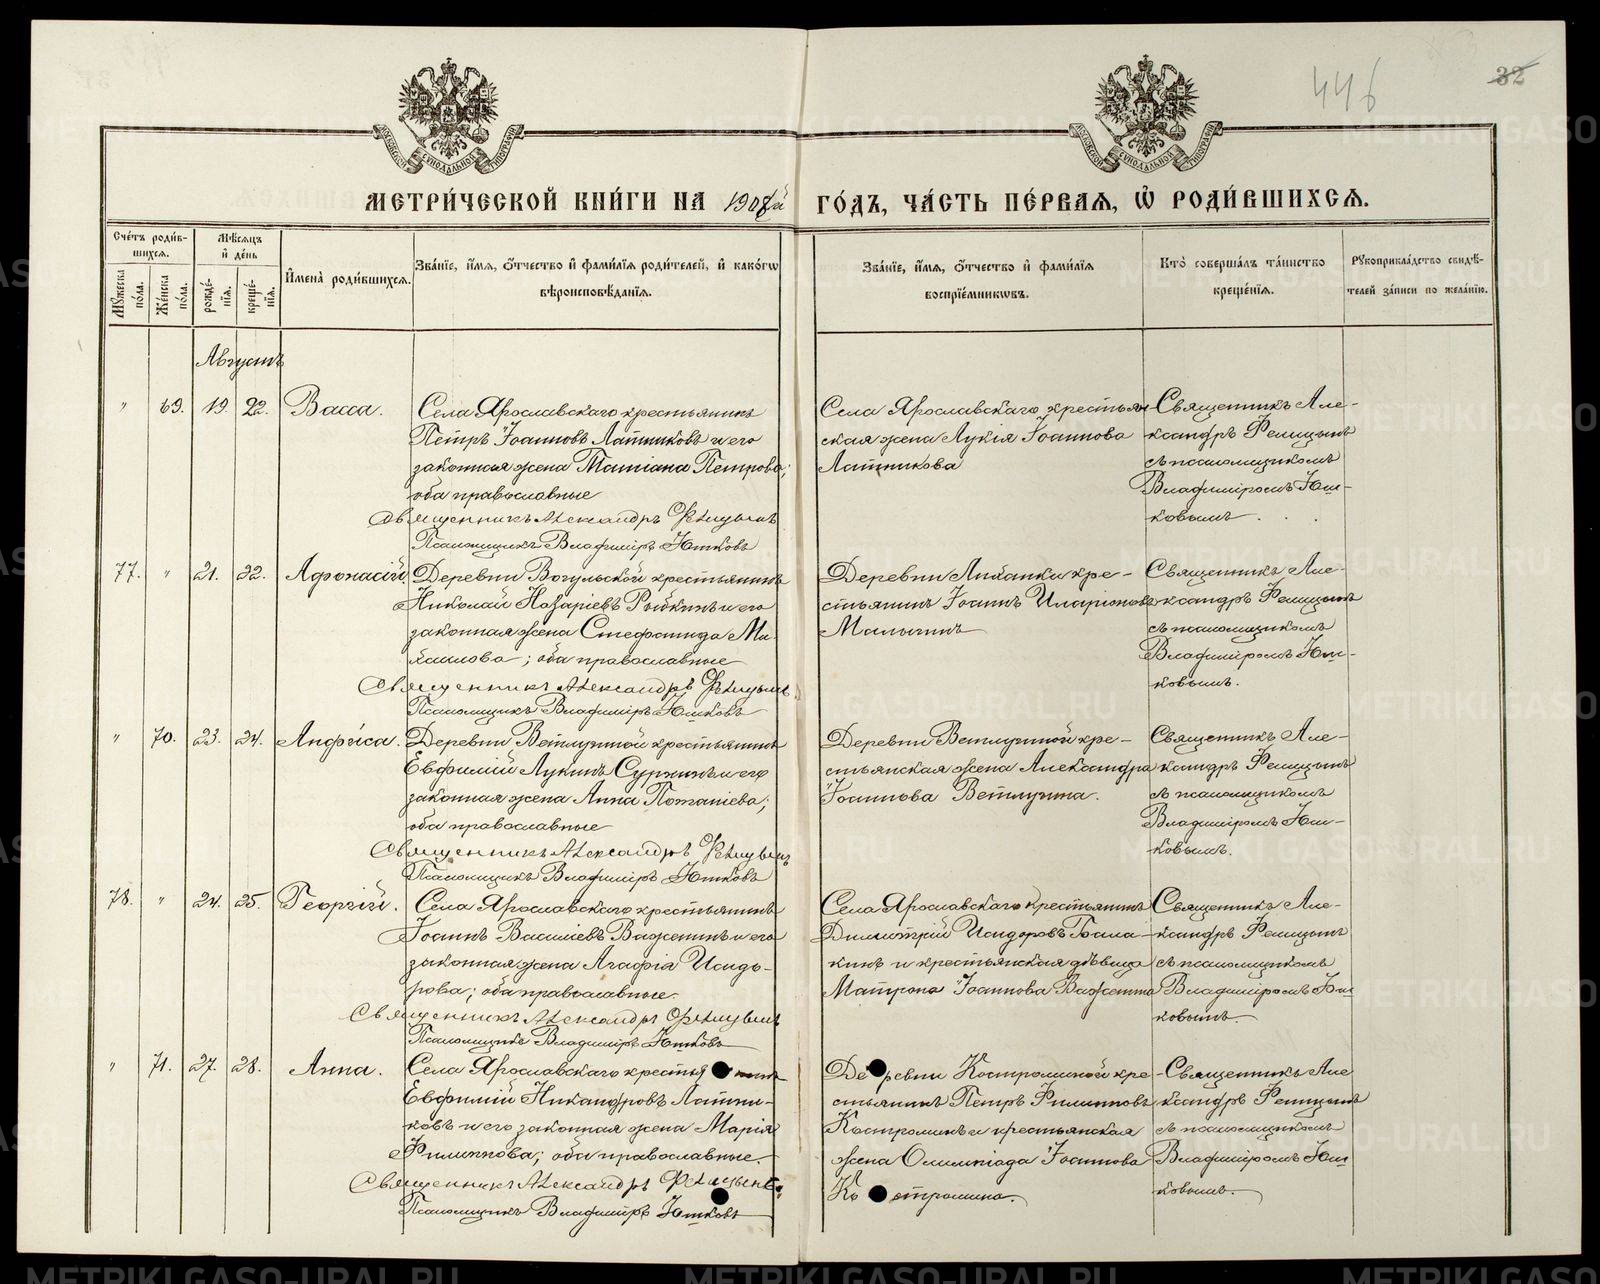 446
32
МОСКОВСКОЙ СУНОДАЛЬНОЙ ТИПОГРАФИИ
МОСКОВСКОЙ СУНОДАЛЬНОЙ ТИПОГРАФИИ
МЕТРИ́ЧЕСКОЙ КНИ́ГИ НА 1908й ГО́ДЪ, ЧА́СТЬ ПЕ́РВАЯ, Ѡ РОДИ́ВШИХСЯ.
Сче́тъ роди́в-
шихся.
Мꙋжеска по́ла.
Же́нска по́ла.
Мѣ́сяцъ
и҆ де́нь
рожде́-
нїя.
креще́-
нїя.
И҆мена̀ роди́вшихся.
Зва́нїе, и҆́мя, ѻ҆́тчество и҆ фами́лїя роди́телей, и҆ како́гѡ
вѣроисповѣ́данїя.
Зва́нїе, и҆́мя, ѻ҆́тчество и҆ фами́лїя
воспрїе́мникѡвъ.
Кто̀ соверша́лъ та́инство
креще́нїя.
Рꙋкоприкла́дство свидѣ́-
телей за́писи по жела́нїю.
Августъ
" 69. 19. 22. Васса.
Села Ярославскаго крестьянинъ
Петръ Іоанновъ Латниковъ и его
законная жена Татіана Петрова;
оба православные
Священникъ Александръ Фелицынъ
Псаломщикъ Владиміръ Юшковъ
Села Ярославскаго крестьян
ская жена Лукія Іоаннова
Латникова
Священникъ Але-
ксандръ Фелицынъ
съ псаломщикомъ
Владиміромъ Юш-
ковымъ
77. " 21. 22. Афонасій
Деревни Вогульской крестьянинъ
Николай Назаріевъ Рыбкинъ и его
законная жена Стефанида Ми-
хаилова; оба православные
Священникъ Александръ Фелицынъ
Псаломщикъ Владиміръ Юшковъ
Деревни Лиханки кре-
стьянинъ Іоаннъ Иларіоновъ
Малыгинъ
Священникъ Але-
ксандръ Фелицынъ
съ псаломщикомъ
Владиміромъ Юш-
ковымъ.
" 70. 23. 24. Анфиса.
Деревни Ветлугиной крестьянинъ
Евфимій Лукинъ и его
законная жена Анна Потапіева;
оба православные
Священникъ Александръ Фелицынъ
Псаломщикъ Владиміръ Юшковъ
Деревни Ветлугиной кре-
стьянская жена Александра
Іоаннова Ветлугина.
Священникъ Але-
ксандръ Фелицынъ
съ псаломщикомъ
Владиміромъ Юш-
ковымъ.
78. " 24. 25. Георгій.
Села Ярославскаго крестьянинъ
Іоаннъ Васильевъ Важенинъ и его
законная жена Агафія Исидо-
рова; оба православные.
Священникъ Александръ Фелицынъ
Псаломщикъ Владиміръ Юшковъ
Села Ярославскаго крестьянинъ
Димитрій Исидоровъ
и крестьянская дѣвица
Матрона Іоаннова Важенина
Священникъ Але-
ксандръ Фелицынъ
съ псаломщикомъ
Владиміромъ Юш
ковымъ.
" 71. 27. 28. Анна.
Села Ярославскаго крестья нинъ
Евфимій Никандровъ Латни-
ковъ и его законная жена Марія
Филиппова; оба православные.
Священникъ Александръ Фелицынъ
Псаломщикъ Владиміръ Юшковъ
Деревни Костроминой кре
стьянинъ Петръ Филипповъ
Костроминъ и крестьянская
жена Олимпіада Іоаннова
Костромина.
Священникъ Але
ксандръ Фелицынъ
съ псаломщикомъ
Владиміромъ Юш
ковымъ.
METRIKI.GASO-URAL.RU